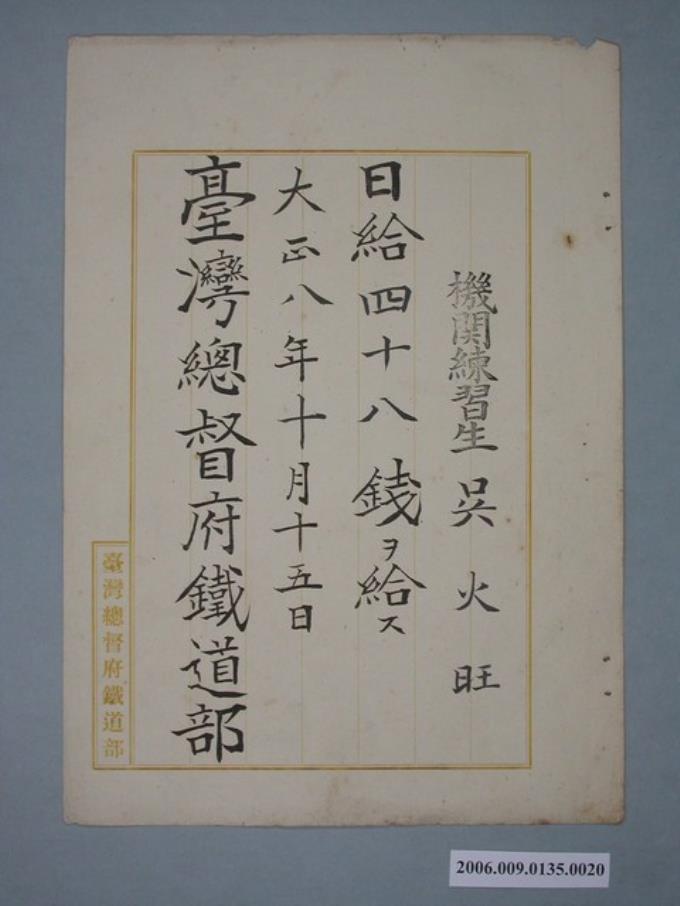 機関練習生 吳火旺
日給四十八錢ヲ給ス
大正八年十月十五日
臺灣總督府鐵道部
臺灣總督府鐵道部
2006.009.0135.0020